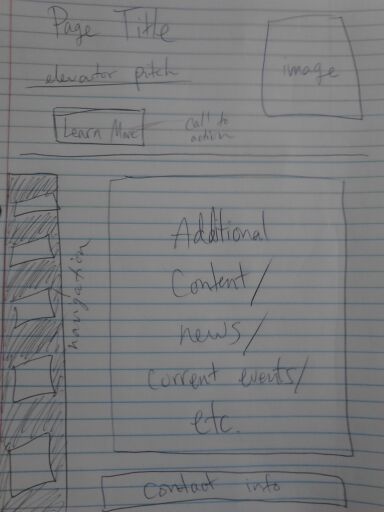 Page Title
elevator pitch
image
Learn More
call to
action
navigation
Additional
Content/
news/
current events/
etc.
contact info